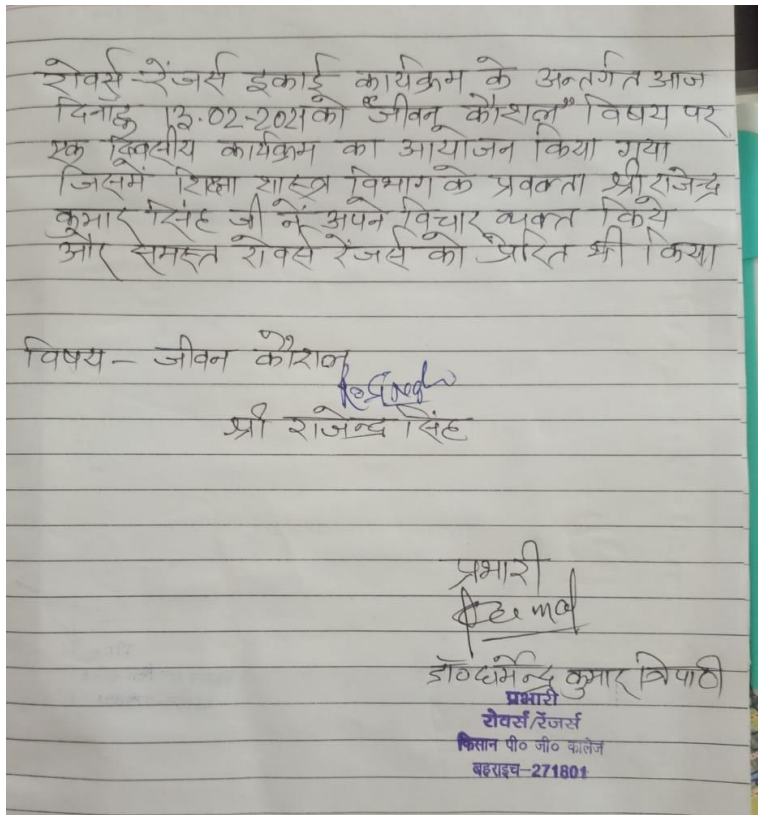 रोवर्स-रेंजर्स इकाई कार्यक्रम के अन्तर्गत आज
दिनाँक 13.02-2021को "जीवन कौशल" विषय पर
एक दिवसीय कार्यक्रम का आयोजन किया गया
जिसमें शिक्षा शास्त्र विभाग के प्रवक्ता श्री राजेन्द्र
कुमार सिंह जी नें अपने विचार व्यक्त किये
और समस्त रोवर्स रेंजर्स को प्रेरित भी किया
विषय - जीवन कौशल
श्री राजेन्द्र सिंह
प्रभारी
डॉ० धर्मेन्द्र कुमार त्रिपाठी
प्रभारी
रोवर्स/रेंजर्स
किसान पी० जी० कालेज
बहराइच-271801